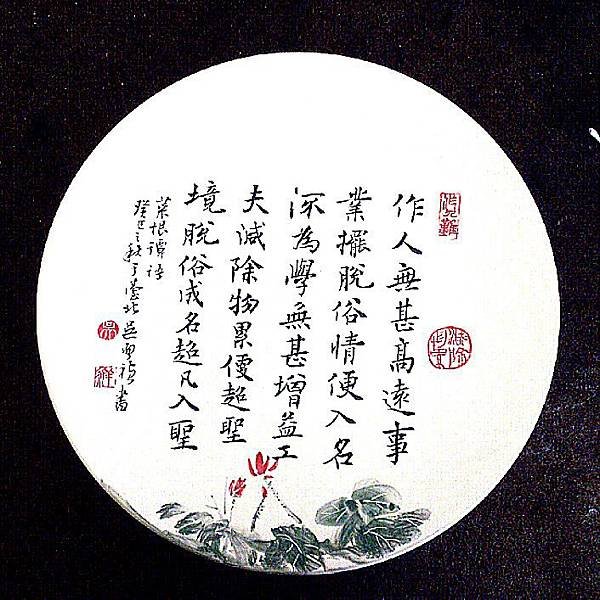 作人無甚高遠事
業擺脫俗情便入名
流為學無甚增益工
夫減除物累便超聖
境脫俗成名超凡入聖
菜根譚語
癸巳之秋于臺北吳
書
減除